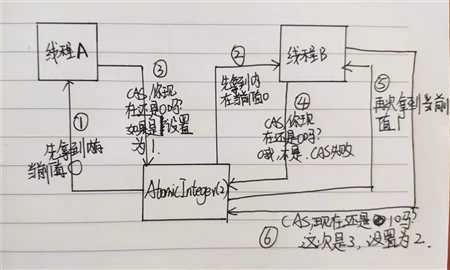 线程A
线程B
①
先拿到内存
当前值0
③
CAS,你现
在还是0吗?
如果是 设置
为1.
②
先拿到内
存当前值0
④
CAS,你现
在还是0吗?
不是.CAS失败
⑤
再次拿到当前
值1
AtomicInteger
⑥
CAS,现在还是
这次是 设置为2.